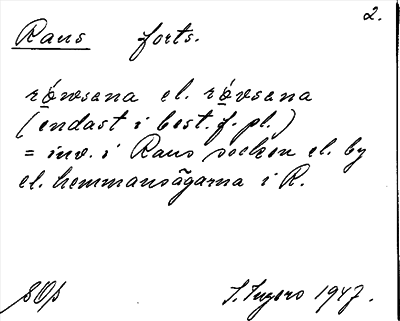 2.
Raus forts.
rówsana el. róvsana
(endast i best. f. pl.)
= inv. i Raus socken el. by
el. hemmansägarna i R.
SOp 1947.